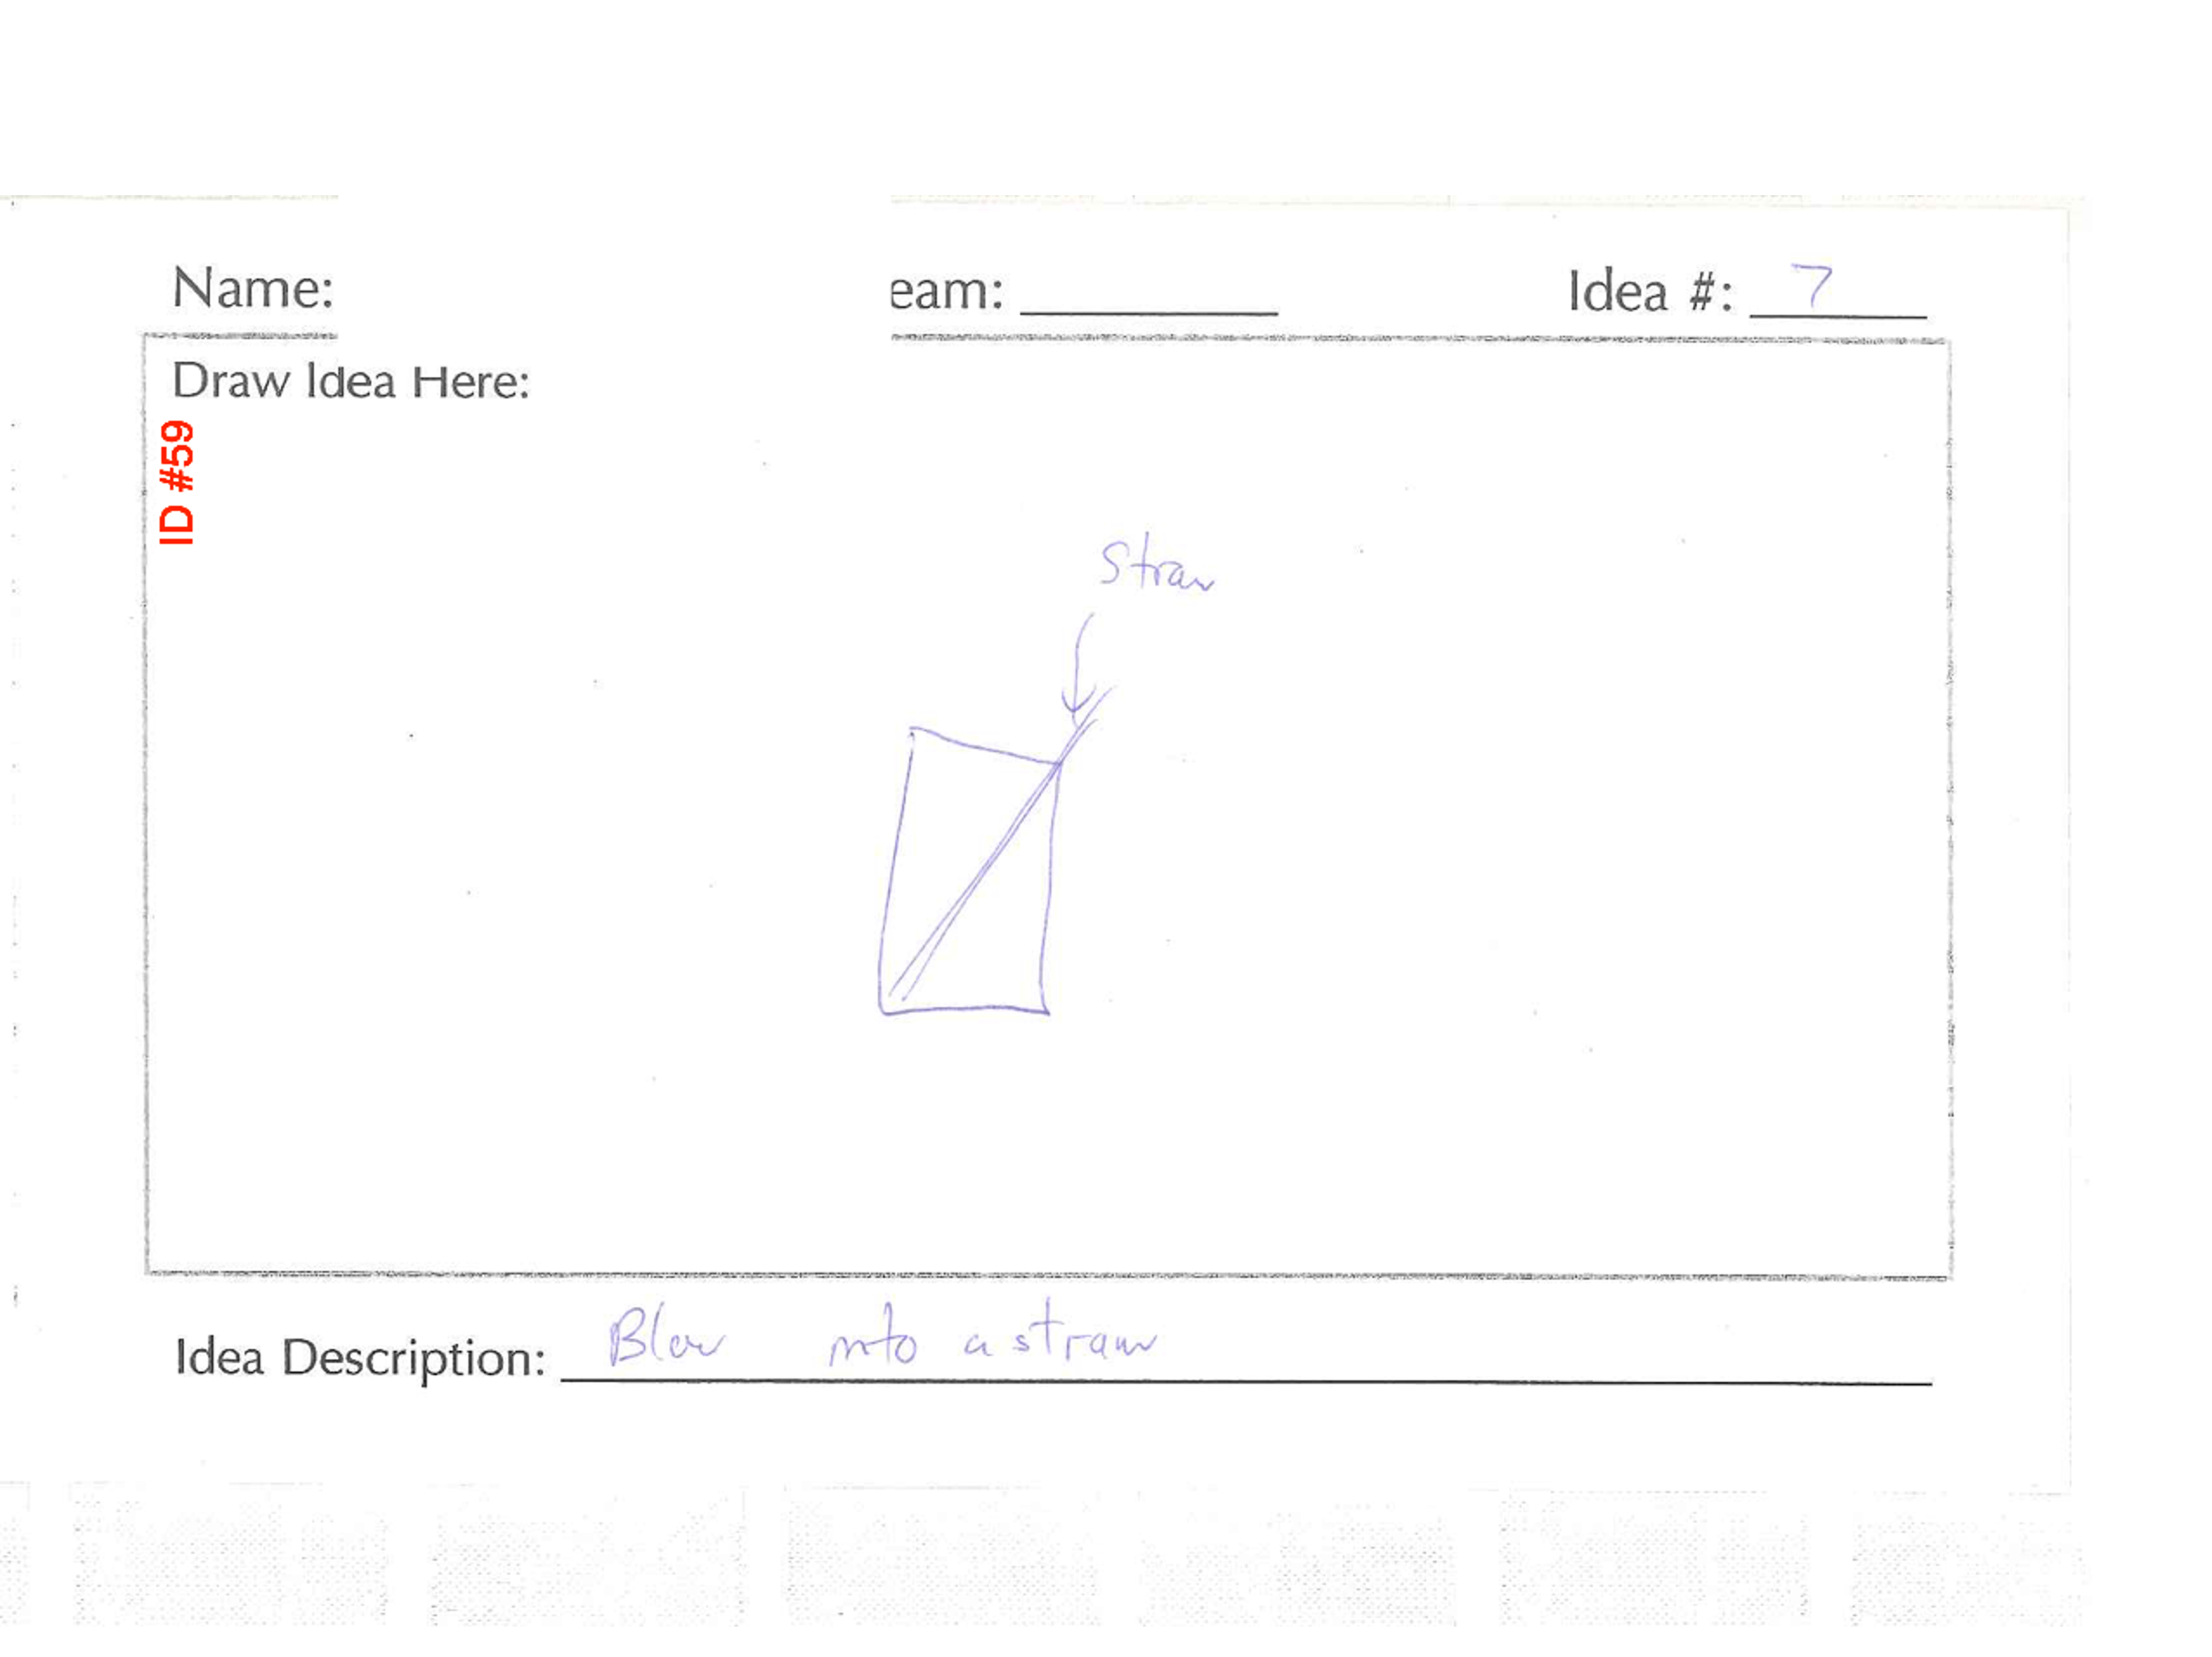 Name: eam: Idea #: 7
Draw Idea Here:
ID #59
Straw
Idea Description: Blow into a straw